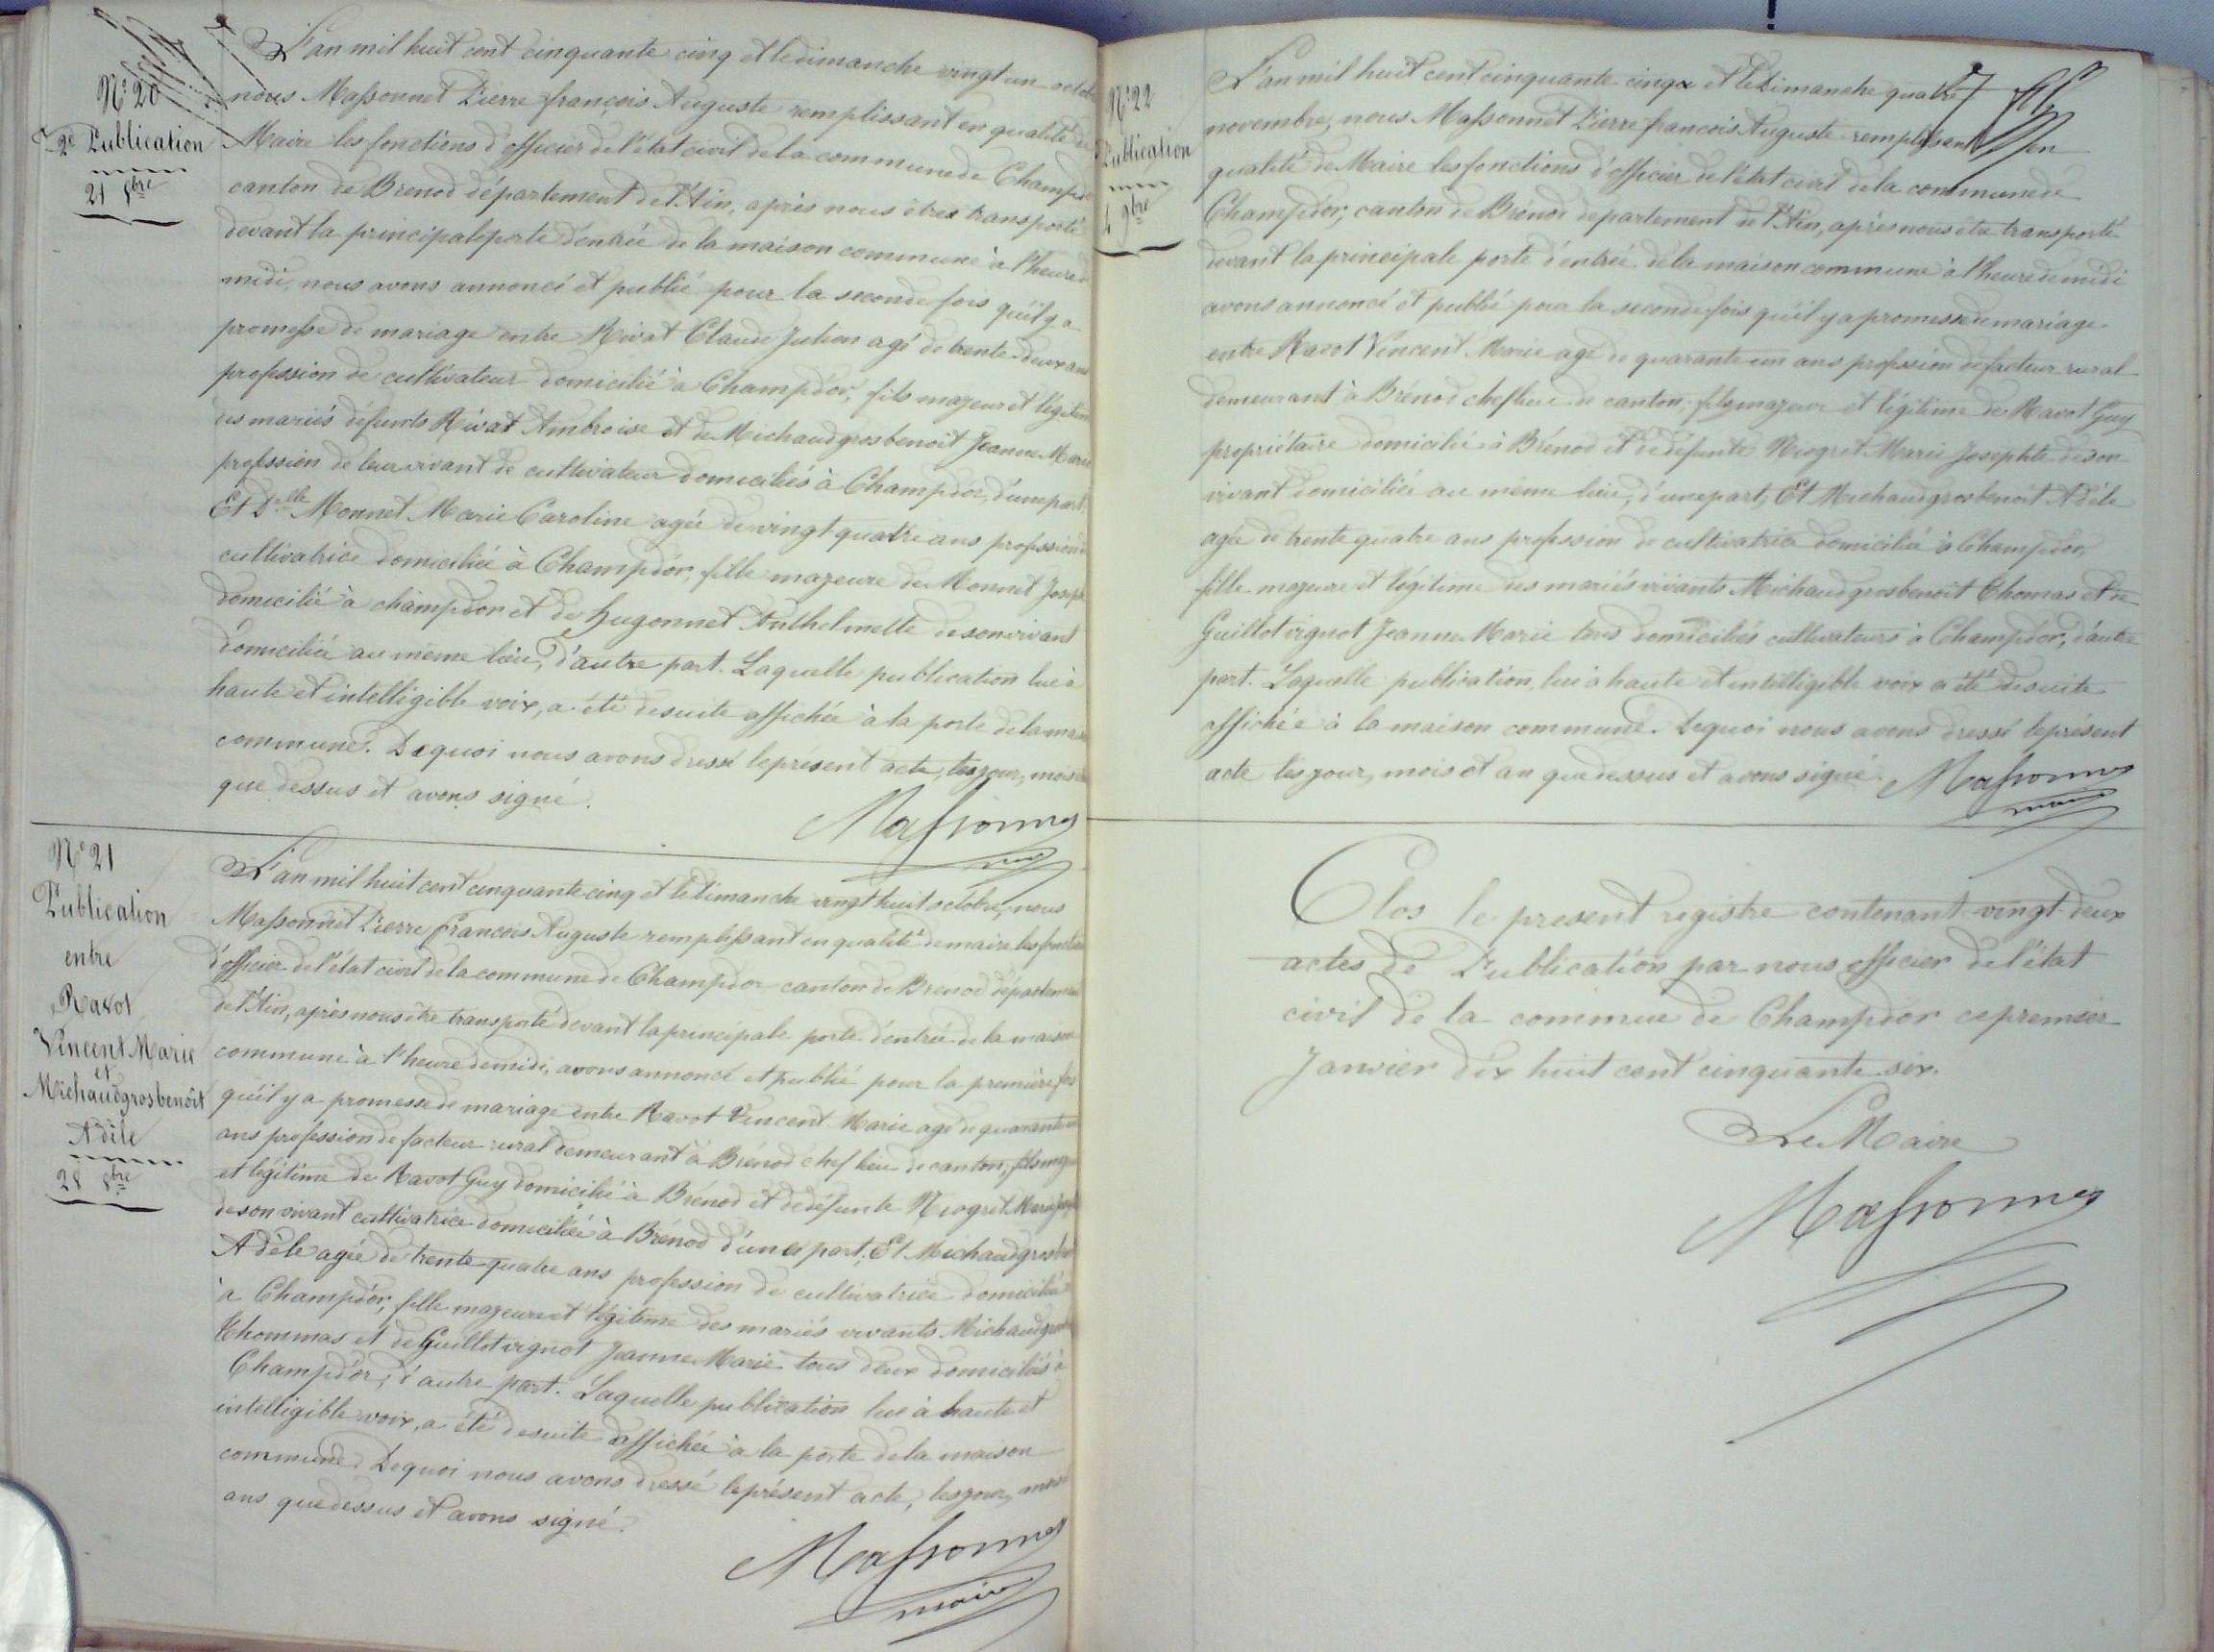 N° 20
2e Publication
21 8bre
L'an mil huit cent cinquante cinq et le dimanche vingt un octobre
nous Massonnet Pierre françois Auguste remplissant en qualité de
Maire les fonctions d'officier de l'état civil de la commune de Champdor
canton de Brenod département de l'Ain, après nous être transporté
devant la principale porte d'entrée de la maison commune à l'heure de
midi, nous avons annoncé et publié pour la seconde fois qu'il y a
promesse de mariage entre Rivat Claude Julien agé de trente deux ans
profession de cultivateur domicilié à Champdor, fils majeur et légitime
des mariés défunts Rivat Ambroise et de Michaudgrosbenoit Jeanne Marie
profession de leur vivant de cultivateur domiciliés à Champdor, d'une part,
Et Delle Monnet Marie Caroline agée de vingt quatre ans profession de
cultivatrice domiciliée à Champdor, fille majeure de Monnet Joseph
domicilié à champdor et de hugonnet Anthelmette de son vivant
domiciliée au même lieu, d'autre part. Laquelle publication lue à
haute et intelligible voix, a été desuite affichée à la porte de la maison
commune. De quoi nous avons dressé le présent acte, les jour, mois
que dessus et avons signé.
Massonnet
N° 21
Publication
entre
Ravot
Vincent Marie
et
Michaudgrosbenoit
Adèle
28 8bre
L'an mil huit cent cinquante cinq et le dimanche vingt huit octobre, nous
Massonnet Pierre francois Auguste remplissant en qualité de maire les fonctions
d'officier de l'état civil de la commune de Champdor canton de Brenod département
de l'Ain, après nous être transporté devant la principale porte d'entrée de la maison
commune à l'heure de midi, avons annoncé et publié pour la première fois
qu'il y a promesse de mariage entre Ravot Vincent Marie agé de quarante un
ans profession de facteur rural demeurant à Brénod chef lieu de canton, fils majeur
et légitime de Ravot Guy domicilié à Brénod et de défunte Niogret Marie
de son vivant cultivatrice domiciliée à Brénod d'une part, Et Michaudgrosbenoit
Adèle agée de trente quatre ans profession de cultivatrice domiciliée
à Champdor, fille majeure et légitime des mariés vivants Michaudgros
Thommas et de Guillotvignot Jeanne Marie tous deux domiciliés à
Champdor, d'autre part. Laquelle publication lue à haute et
intelligible voix, a été desuite affichée à la porte de la maison
commune. De quoi nous avons dressé le présent acte, les jour, mois
ans que dessus et avons signé.
Massonnet
maire
N° 22
Publication
4 9bre
L'an mil huit cent cinquante cinq et le Dimanche quatre
novembre, nous Massonnet Pierre francois Auguste remplissant en
qualité de Maire les fonctions d'officier de l'état civil de la commune de
Champdor, canton de Brénod département de l'Ain, après nous être transporté
devant la principale porte d'entrée de la maison commune à l'heure de midi
avons annoncé et publié pour la seconde fois qu'il y a promesse de mariage
entre Ravot Vincent Marie agé de quarante un ans profession de facteur rural
demeurant à Brénod chef lieu de canton, fils majeur et légitime de Ravot Guy
propriétaire domicilié à Brénod et de défunte Niogret Marie Josephte de son
vivant domiciliée au même lieu, d'une part, Et Michaudgrosbenoit Adèle
agée de trente quatre ans profession de cultivatrice domiciliée à Champdor,
fille majeure et légitime des mariés vivants Michaudgrosbenoit Thomas et de
Guillotvignot Jeanne Marie tous domiciliés cultivateurs à Champdor, d'autre
part. Laquelle publication, lue à haute et intelligible voix a été desuite
affichée à la maison commune. De quoi nous avons dressé le présent
acte les jour, mois et an que dessus et avons signé. Massonnet
maire
Clos le present registre contenant vingt deux
actes de Publication par nous officier de l'état
civil de la commune de Champdor ce premier
Janvier dix huit cent cinquante six.
Le Maire
Massonnet